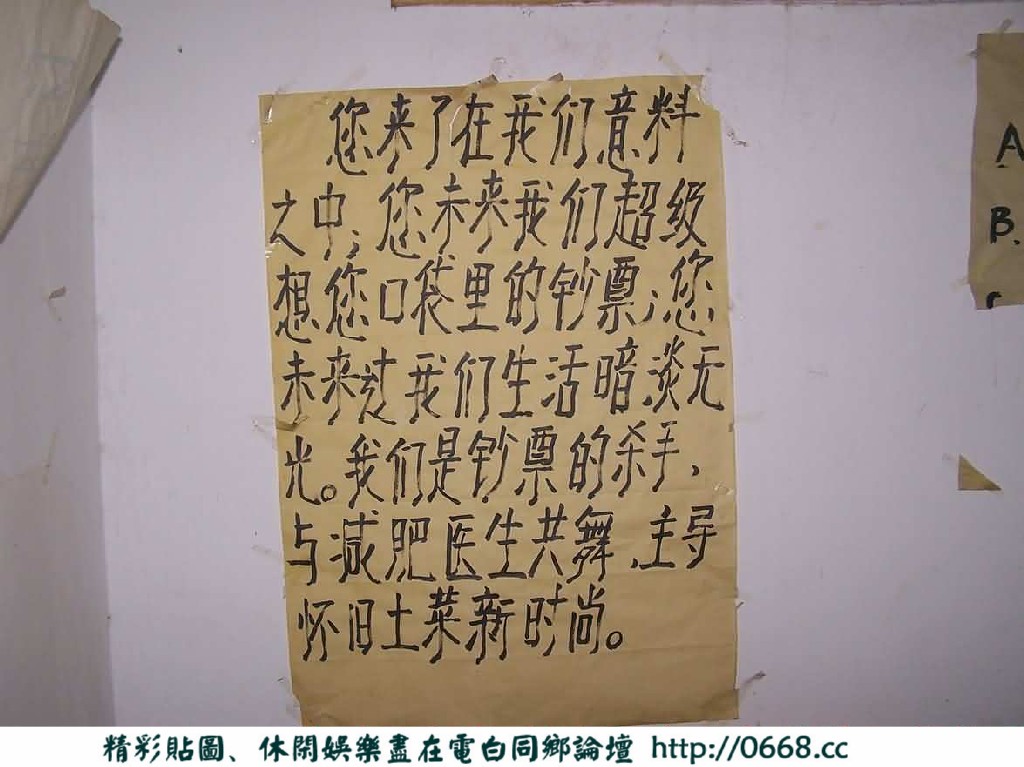 您来了在我们意料
之中;您未来我们超级
想您口袋里的钞票;您
未来过我们生活暗淡无
光。我们是钞票的杀手,
与减肥医生共舞,主导
怀旧土菜新时尚。
A
B.
精彩貼圖、休閑娛樂盡在電白同鄉論壇 http://0668.cc